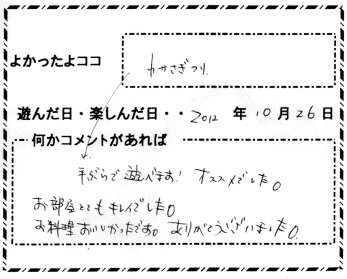 よかったよココ わかさぎつり
遊んだ日・楽しんだ日・・2012 年 10 月 26 日
何かコメントがあれば
手ぶらで遊べます! オススメでした。
お部屋とてもキレイでした。
お料理おいしかったです。ありがとうございました。